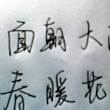 面朝大
春暖花